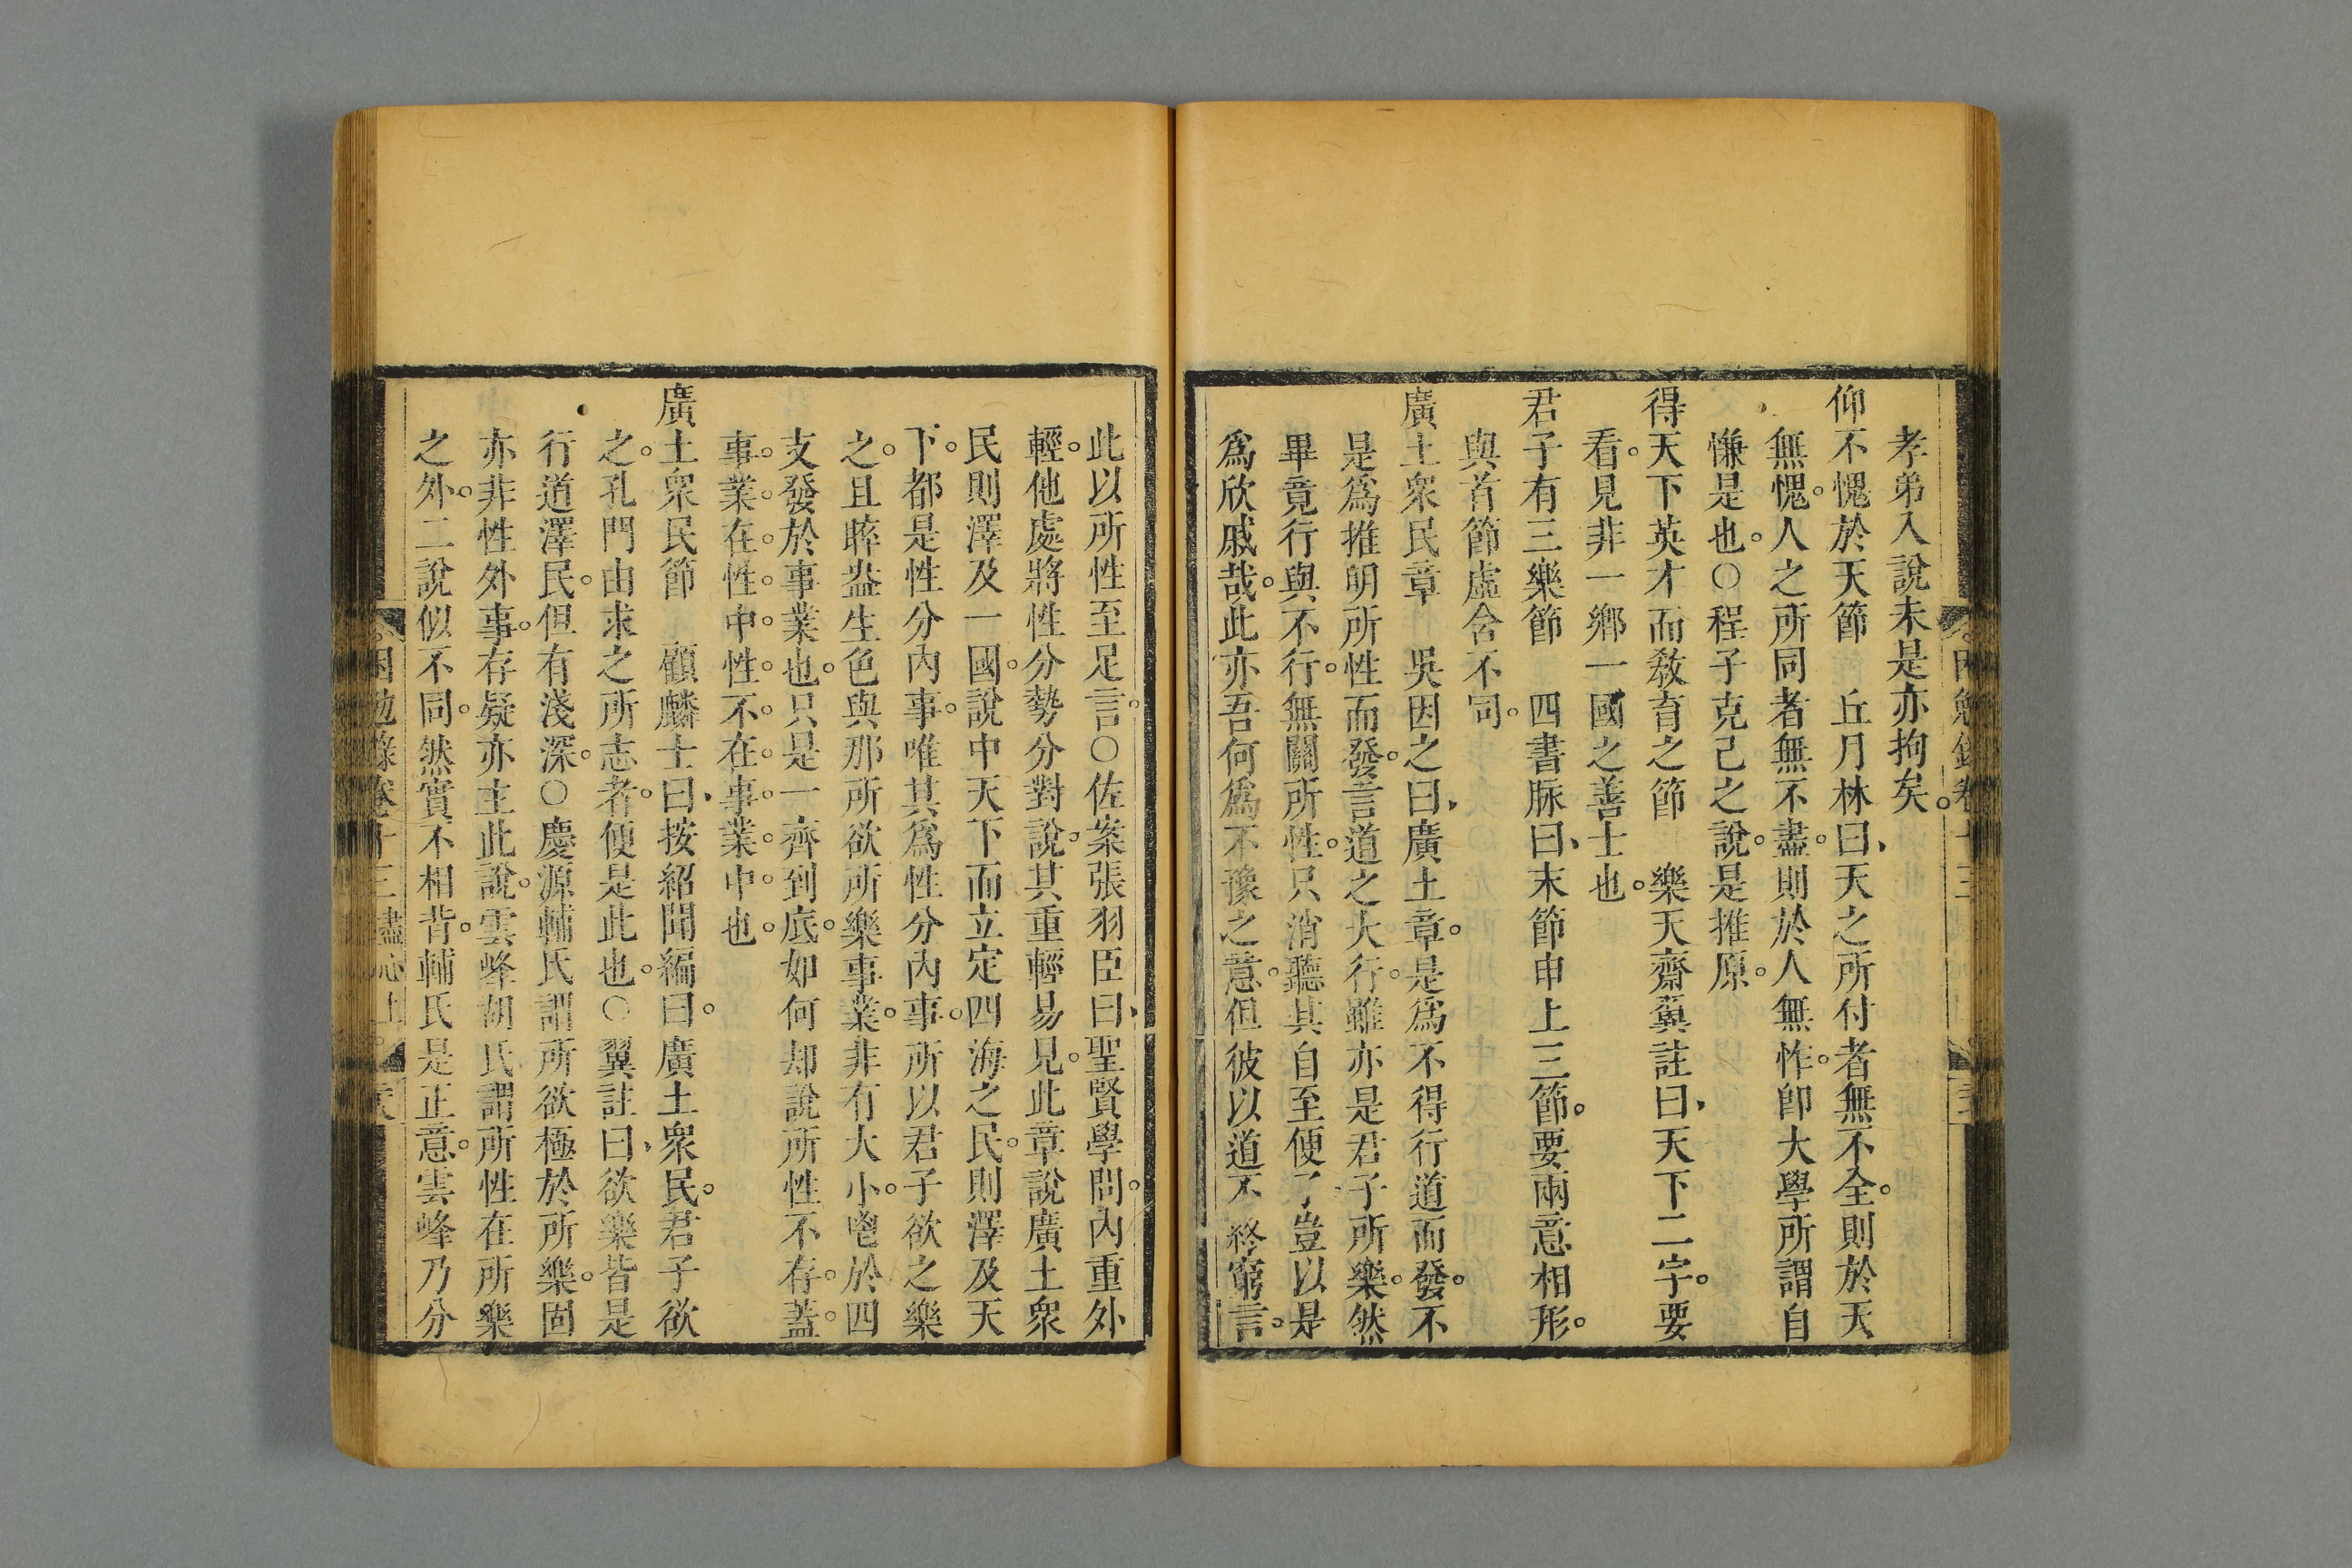 孝弟入說未是亦拘矣。
仰不愧於天節　丘月林曰、天之所付者無不全。則於天
無愧。人之所同者無不盡。則於人無怍。卽大學所謂自
慊是也。○程子克己之說。是推原。
得天下英才而敎育之節　樂天齋翼註曰、天下二字。要
看。見非一鄉一國之善士也。
君子有三樂節　四書脉曰、末節申上三節。要兩意相形。
與首節虛含不同。
廣土衆民章　吳因之曰、廣土章。是爲不得行道而發。不
是爲推明所性而發。言道之大行。雖亦是君子所樂。然
畢竟行與不行。無關所性。只消聽其自至便了豈以是
爲欣戚哉。此亦吾何爲不豫之意。但彼以道不終窮言。
此以所性至足言。○佐案張羽臣曰、聖賢學問。內重外
輕。他處將性分勢分對說。其重輕易見。此章說廣土衆
民則澤及一國。說中天下而立定四海之民。則澤及天
下。都是性分內事。唯其爲性分內事。所以君子欲之樂
之。且睟盎生色與那所欲所樂事業。非有大小。唕於四
支發於事業也。只是一齊到底。如何却說所性不存。蓋。
事。業。在。性。中。性。不。在。事。業。中。也。
廣土衆民節　顧麟士曰、按紹聞編曰。廣土衆民。君子欲
之。孔門由求之所志者。便是此也。○翼註曰、欲樂皆是
行道澤民。但有淺深。○慶源輔氏謂所欲極於所樂。固
亦非性外事。存疑亦主此說。雲峰胡氏謂所性在所樂
之外。二說似不同。然實不相背。輔氏是正意。雲峰乃分
困勉錄卷十三 盡心上